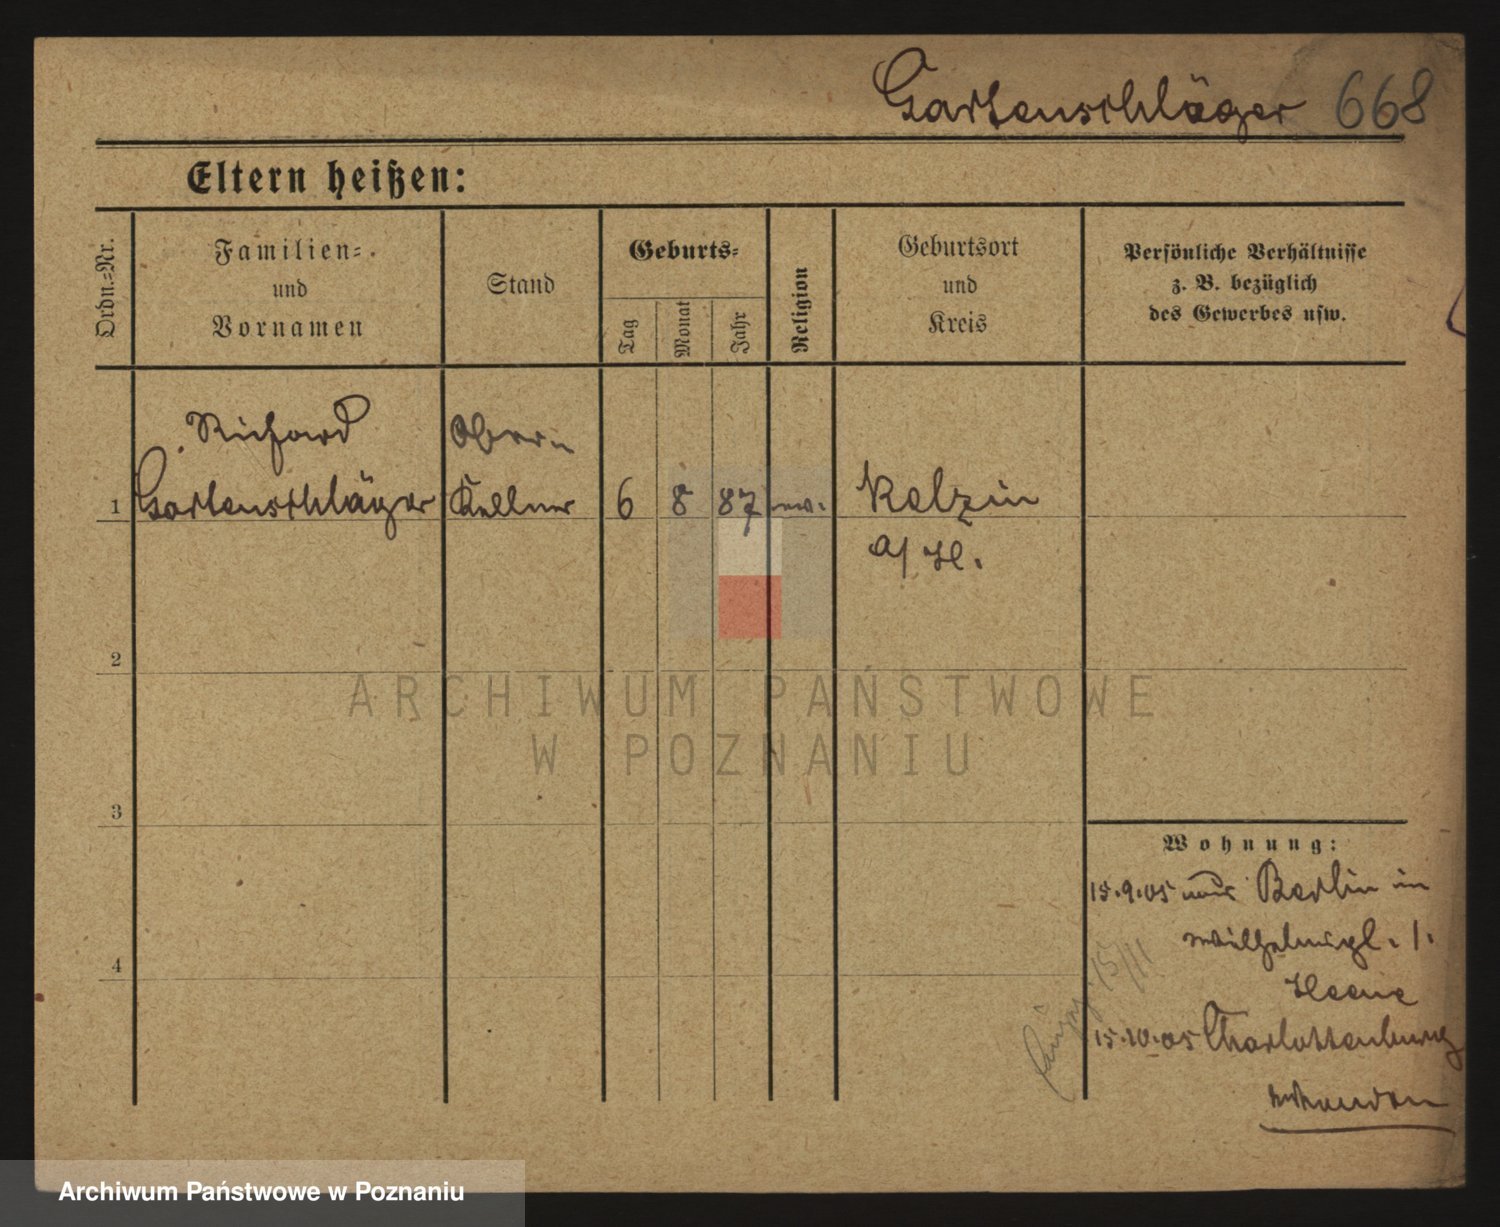 Gartenschläger 668
Eltern heißen:
Ordn.=Nr.
Familien=
und
Vornamen
Stand
Geburts=
Tag
Monat
Jahr
Religion
Geburtsort
und
Kreis
Persönliche Verhältnisse
z. B. bezüglich
des Gewerbes usw.
Richard
Gartenschläger
Ober=
Kellner
1
6
8
87
Kelzin
a/H.
2
ARCHIWUM PAŃSTWOWE
W POZNANIU
3
Wohnung:
15.9.05 aus Berlin in
Wilhelmspl. 1.
4
15/11
15.10.05 Charlottenburg
Archiwum Państwowe w Poznaniu